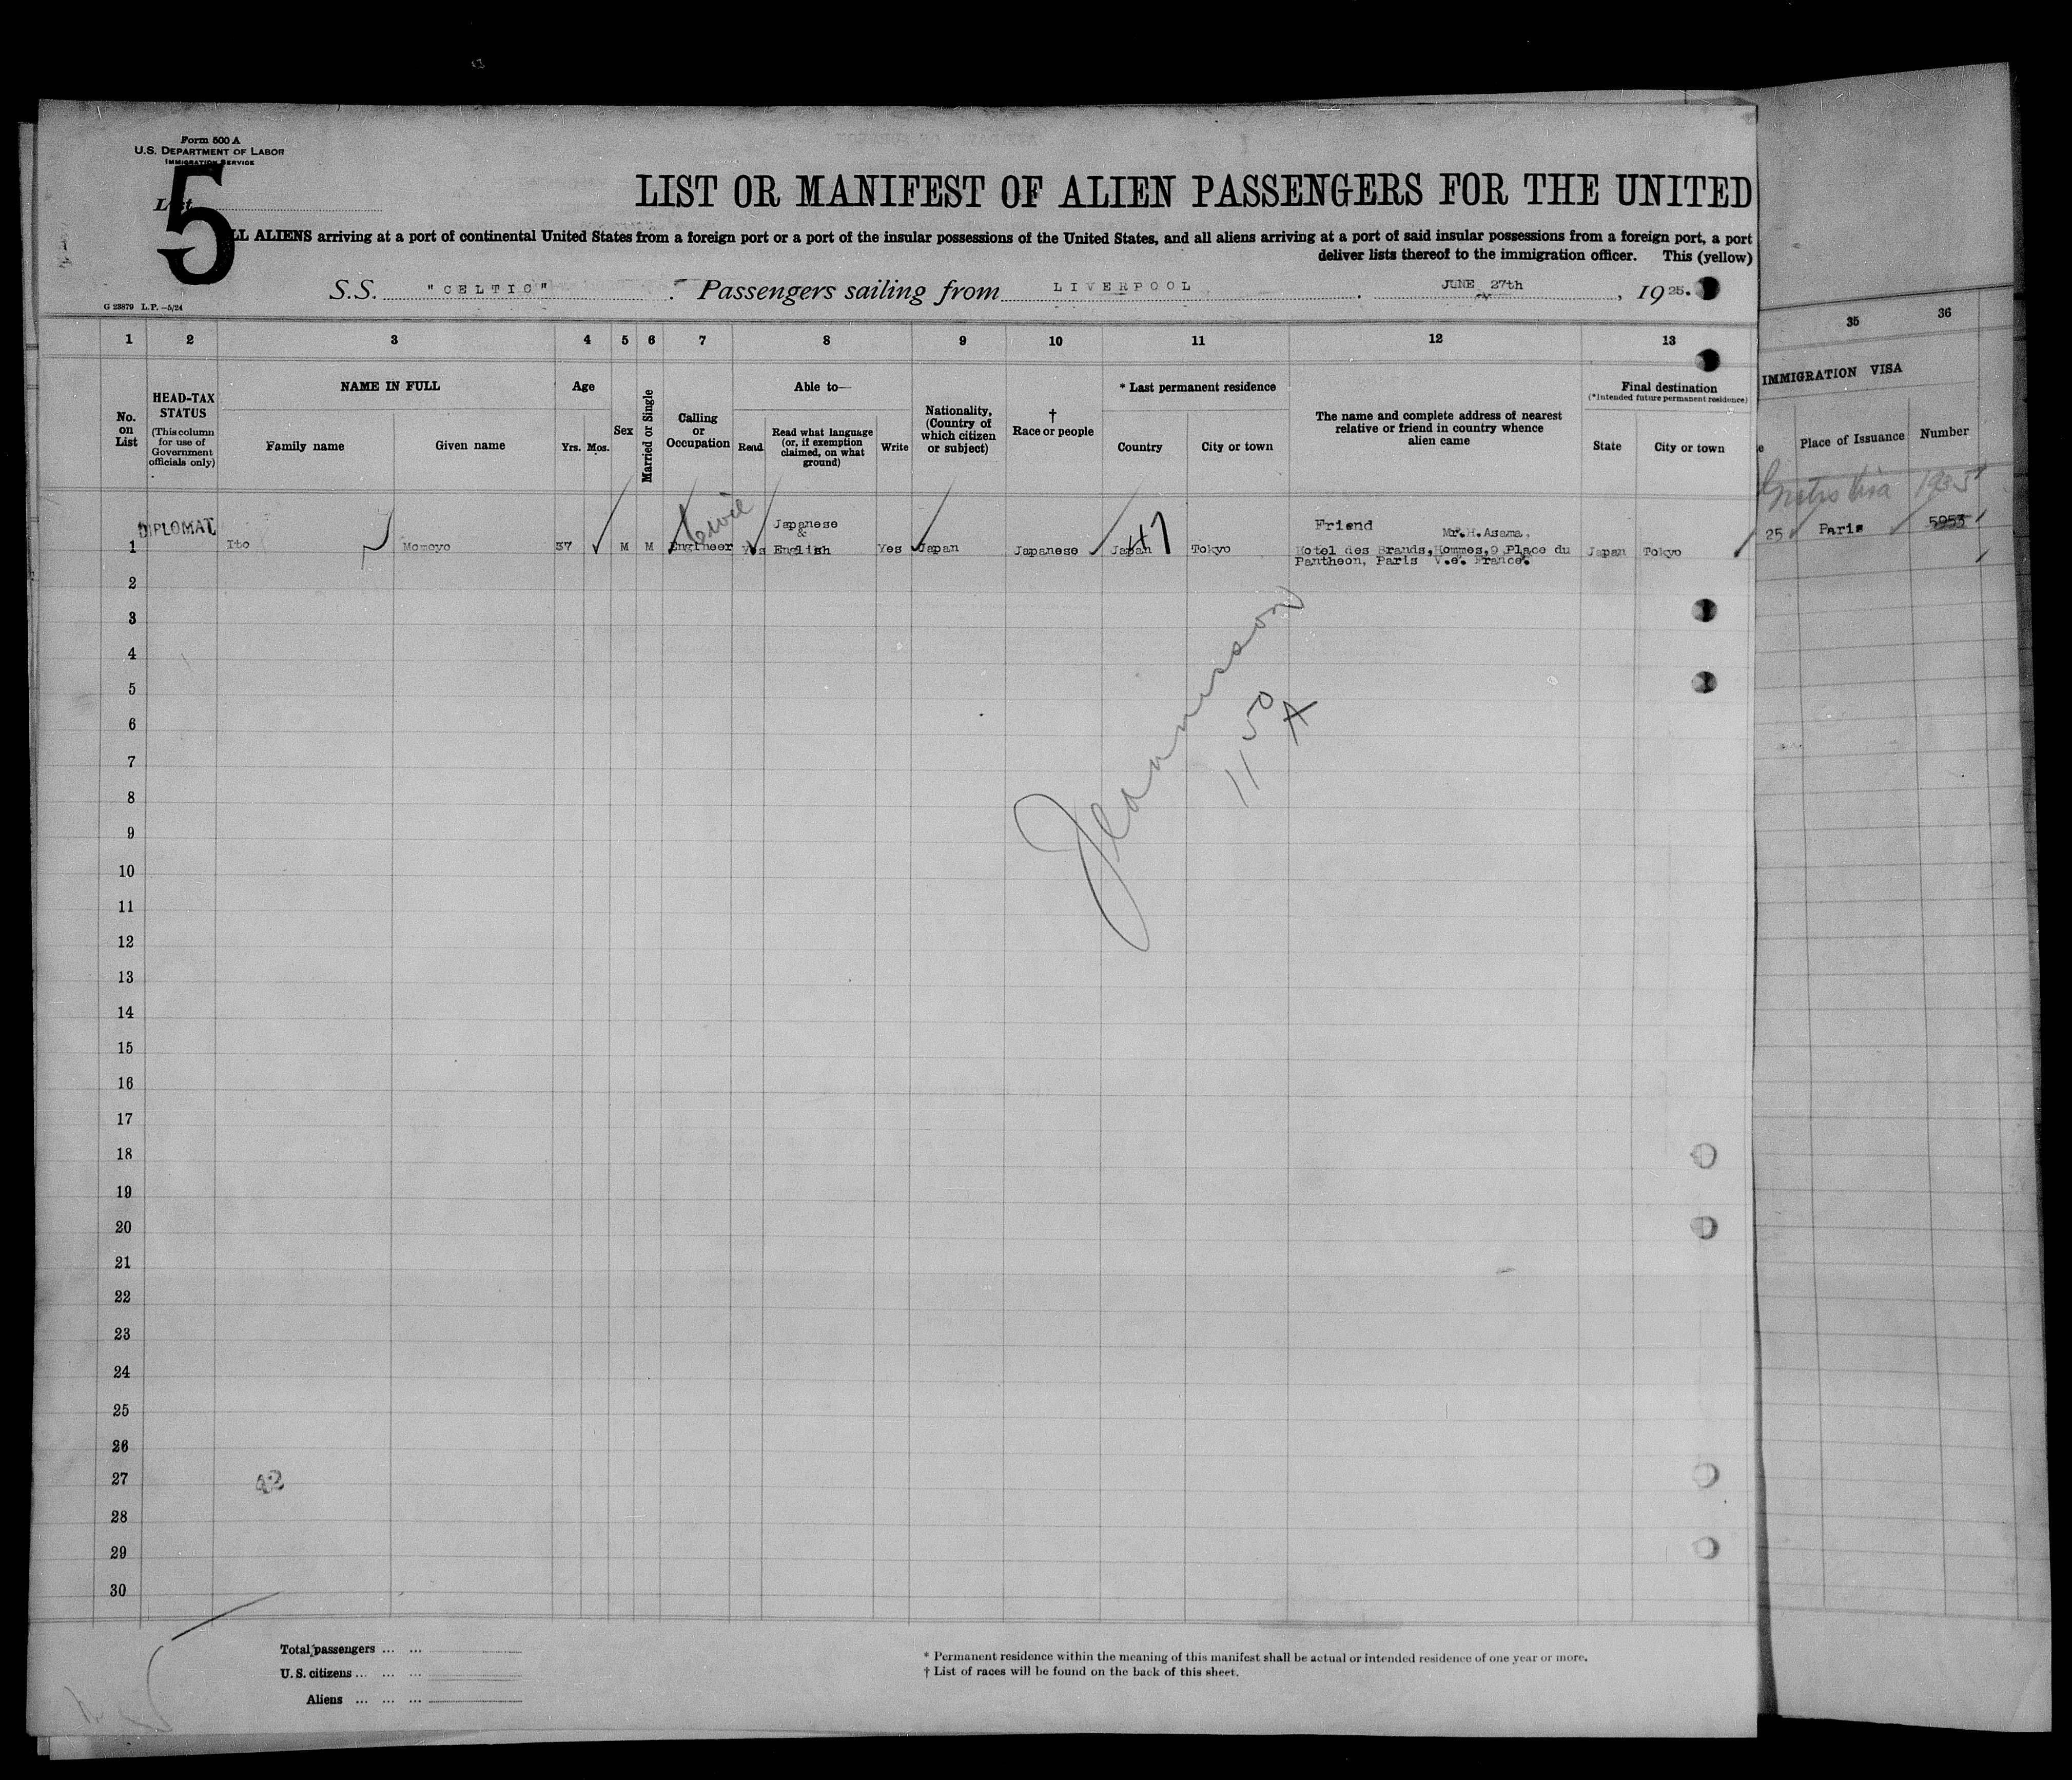 Form 500 A
U.S. DEPARTMENT OF LABOR
IMMIGRATION SERVICE
5
List
LIST OR MANIFEST OF ALIEN PASSENGERS FOR THE UNITED
LL ALIENS arriving at a port of continental United States from a foreign port or a port of the insular possessions of the United States, and all aliens arriving at a port of said insular possessions from a foreign port, a port
deliver lists thereof to the immigration officer. This (yellow)
S.S. "CELTIC" Passengers sailing from LIVERPOOL. JUNE 27th, 1925.
G 23879 L.P.—5/24
1 2 3 4 5 6 7 8 9 10 11 12 13 35 36
No. on List
HEAD-TAX STATUS
(This column for use of Government officials only)
NAME IN FULL
Family name Given name
Age
Yrs. Mos.
Sex
Married or Single
Calling or Occupation
Able to—
Read
Read what language (or, if exemption claimed, on what ground)
Write
Nationality, (Country of which citizen or subject)
†
Race or people
* Last permanent residence
Country City or town
The name and complete address of nearest relative or friend in country whence alien came
Final destination
(*Intended future permanent residence)
State City or town
IMMIGRATION VISA
e Place of Issuance Number
DIPLOMAT
Civil
Japanese
&
Friend
Mr.H.Asama,
1 Ito Momoyo 37 M M Engineer Yes English Yes Japan Japanese Japan Tokyo Hotel des Brands,Hommes,9 Place du Japan Tokyo
Pantheon, Paris V.e. France.
47
Visa 1935
25 Paris 5953
2
3
4
5
6
7
8
9
10
11
12
13
14
15
16
17
18
19
20
21
22
23
24
25
26
27
28
29
30
11 50
A
Total passengers ... ...
U. S. citizens ... ... ...
Aliens ... ... ...
* Permanent residence within the meaning of this manifest shall be actual or intended residence of one year or more.
† List of races will be found on the back of this sheet.